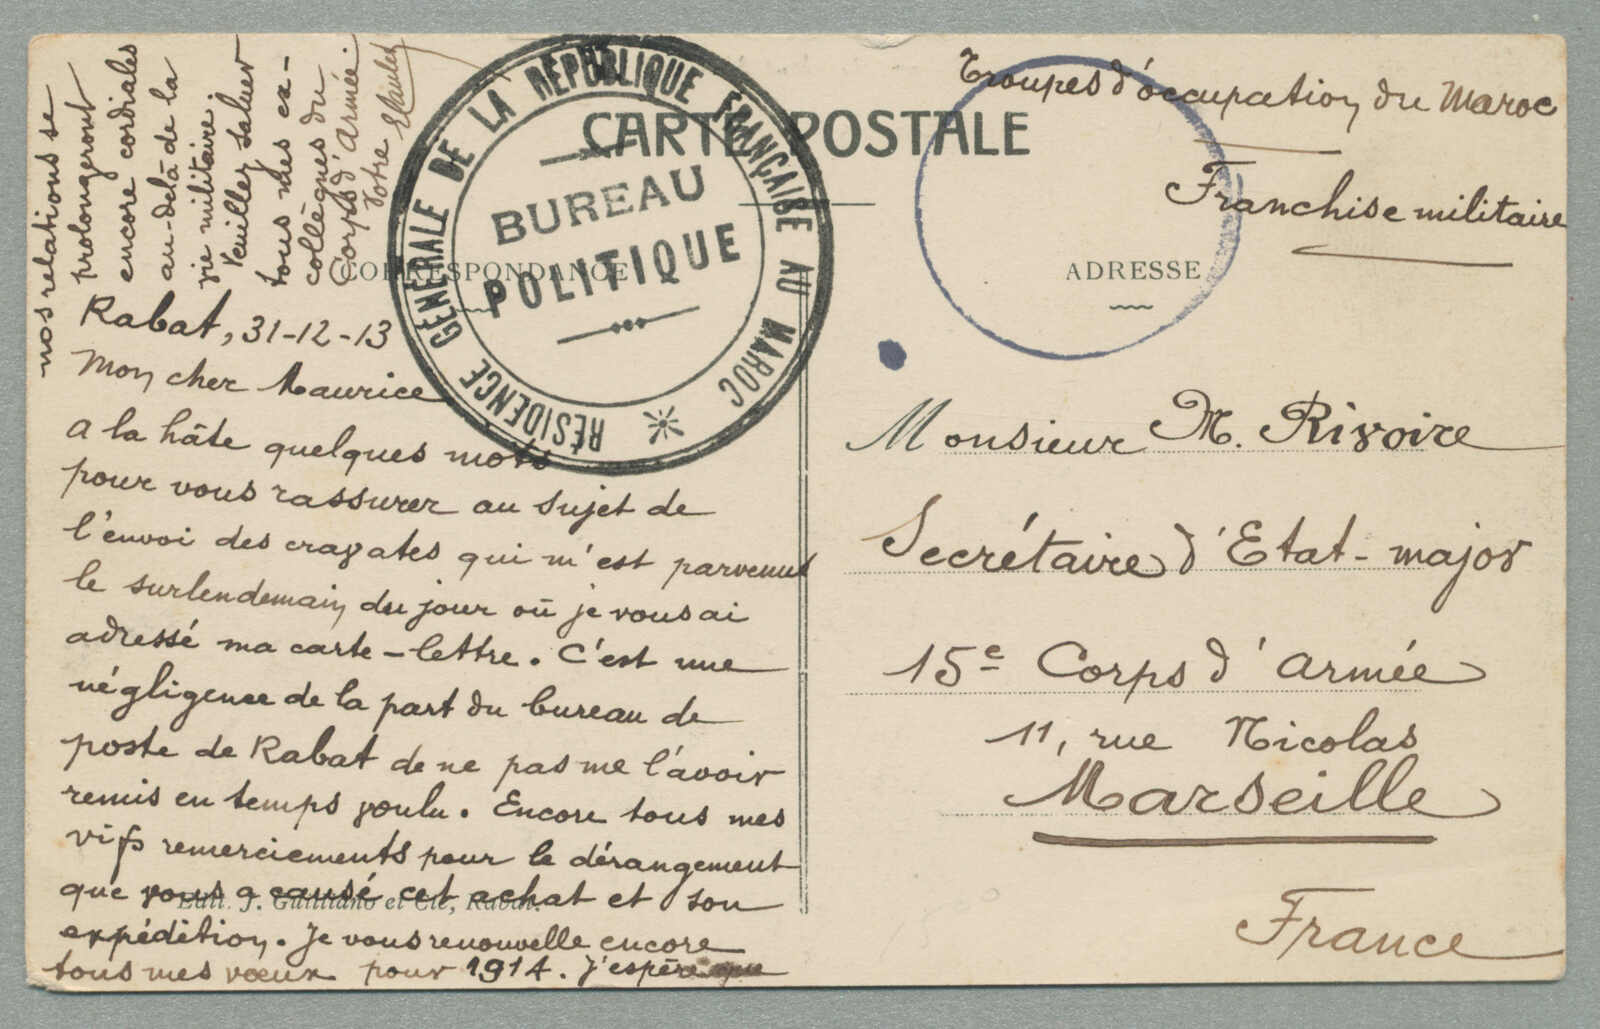 CARTE POSTALE
CORRESPONDANCE
ADRESSE
RÉSIDENCE GÉNÉRALE DE LA RÉPUBLIQUE FRANÇAISE AU MAROC
BUREAU
POLITIQUE
Troupes d'occupation du Maroc
Franchise militaire
Monsieur M. Rivoire
Secrétaire d'Etat-major
15e Corps d'Armée
11, rue Nicolas
Marseille
France
Rabat, 31-12-13
Mon cher Maurice
A la hâte quelques mots
pour vous rassurer au sujet de
l'envoi des cravates qui m'est parvenu
le surlendemain du jour où je vous ai
adressé ma carte-lettre. C'est une
négligence de la part du bureau de
poste de Rabat de ne pas me l'avoir
remis en temps voulu. Encore tous mes
vifs remerciements pour le dérangement
que vous a causé cet achat et son
expédition. Je vous renouvelle encore
tous mes vœux pour 1914. J'espère que
nos relations se
prolongeront
encore cordiales
au-delà de la
vie militaire.
Veuillez saluer
tous mes ex-
collègues du
Corps d'Armée.
Votre
Edit. J. Gaitliano et Cie, Rabat.